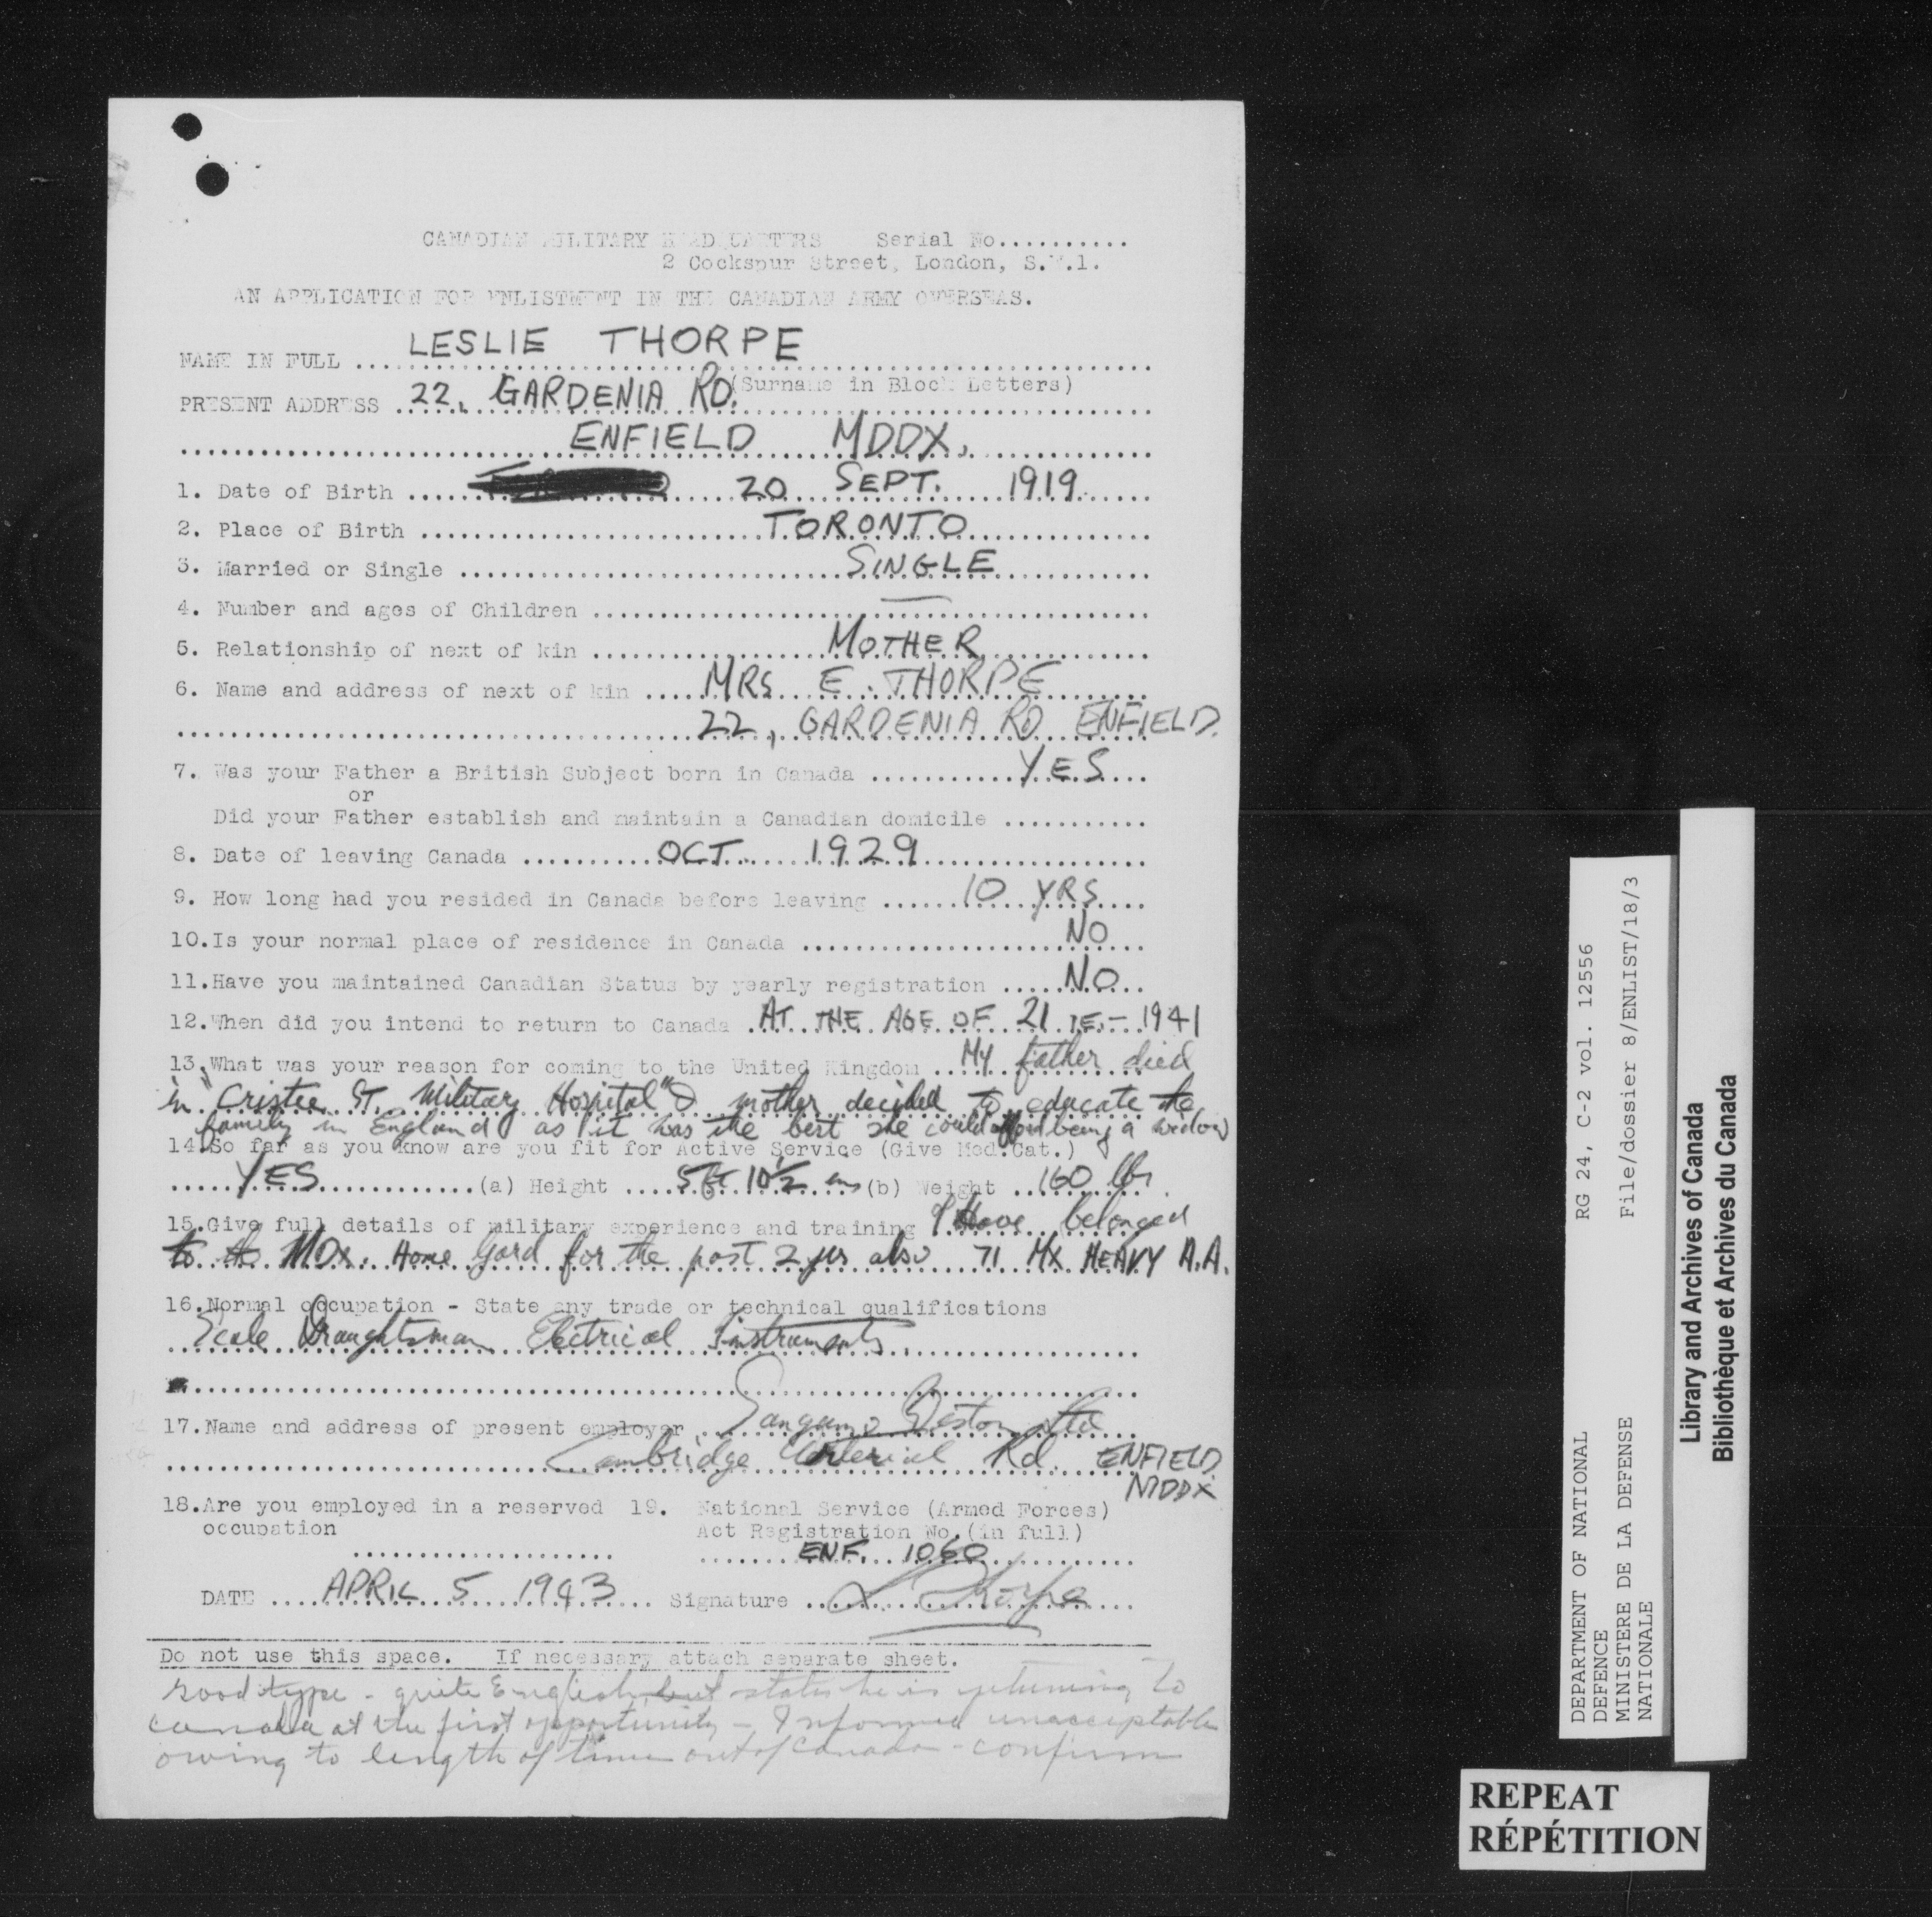 CANADIAN MILITARY HEADQUARTERS Serial No..........
2 Cockspur Street, London, S.W.1.
AN APPLICATION FOR ENLISTMENT IN THE CANADIAN ARMY OVERSEAS.
NAME IN FULL ... LESLIE THORPE
(Surname in Block Letters)
PRESENT ADDRESS ... 22, GARDENIA RD.
ENFIELD MDDX,
1. Date of Birth ... 20 SEPT. 1919
2. Place of Birth ... TORONTO
3. Married or Single ... SINGLE
4. Number and ages of Children ... —
5. Relationship of next of kin ... MOTHER
6. Name and address of next of kin ... MRS E. THORPE
22, GARDENIA RD ENFIELD.
7. Was your Father a British Subject born in Canada ... YES
or
Did your Father establish and maintain a Canadian domicile ...
8. Date of leaving Canada ... OCT. 1929
9. How long had you resided in Canada before leaving ... 10 YRS
10. Is your normal place of residence in Canada ... NO
11. Have you maintained Canadian Status by yearly registration ... NO
12. When did you intend to return to Canada ... AT THE AGE OF 21 IE.- 1941
13. What was your reason for coming to the United Kingdom ... My father died
in "Cristee ST. Military Hospital" & mother decided to educate the
family in England as it was the best she could afford being a widow
14. So far as you know are you fit for Active Service (Give Med. Cat.)
YES ... (a) Height ... 5 ft 10½ ins (b) Weight ... 160 lbs.
15. Give full details of military experience and training I Have belonged
to the MDX. Home Gard for the past 2 yrs also 71 MX HEAVY A.A.
16. Normal occupation - State any trade or technical qualifications
Scale Draughtsman Electrical Instruments
17. Name and address of present employer ... Sangamo Weston Ltd
Cambridge Arterial Rd. ENFIELD
MDDX
18. Are you employed in a reserved 19. National Service (Armed Forces)
occupation Act Registration No. (in full)
... ENF. 1060
DATE ... APRIL 5 1943 ... Signature ... L. Thorpe
Do not use this space. If necessary attach separate sheet.
Good type - quite English, but states he is returning to
Canada at the first opportunity - Informed unacceptable
owing to length of time out of Canada - confirm
RG 24, C-2 vol. 12556
File/dossier 8/ENLIST/18/3
DEPARTMENT OF NATIONAL
DEFENCE
MINISTERE DE LA DEFENSE
NATIONALE
Library and Archives of Canada
Bibliothèque et Archives du Canada
REPEAT
RÉPÉTITION